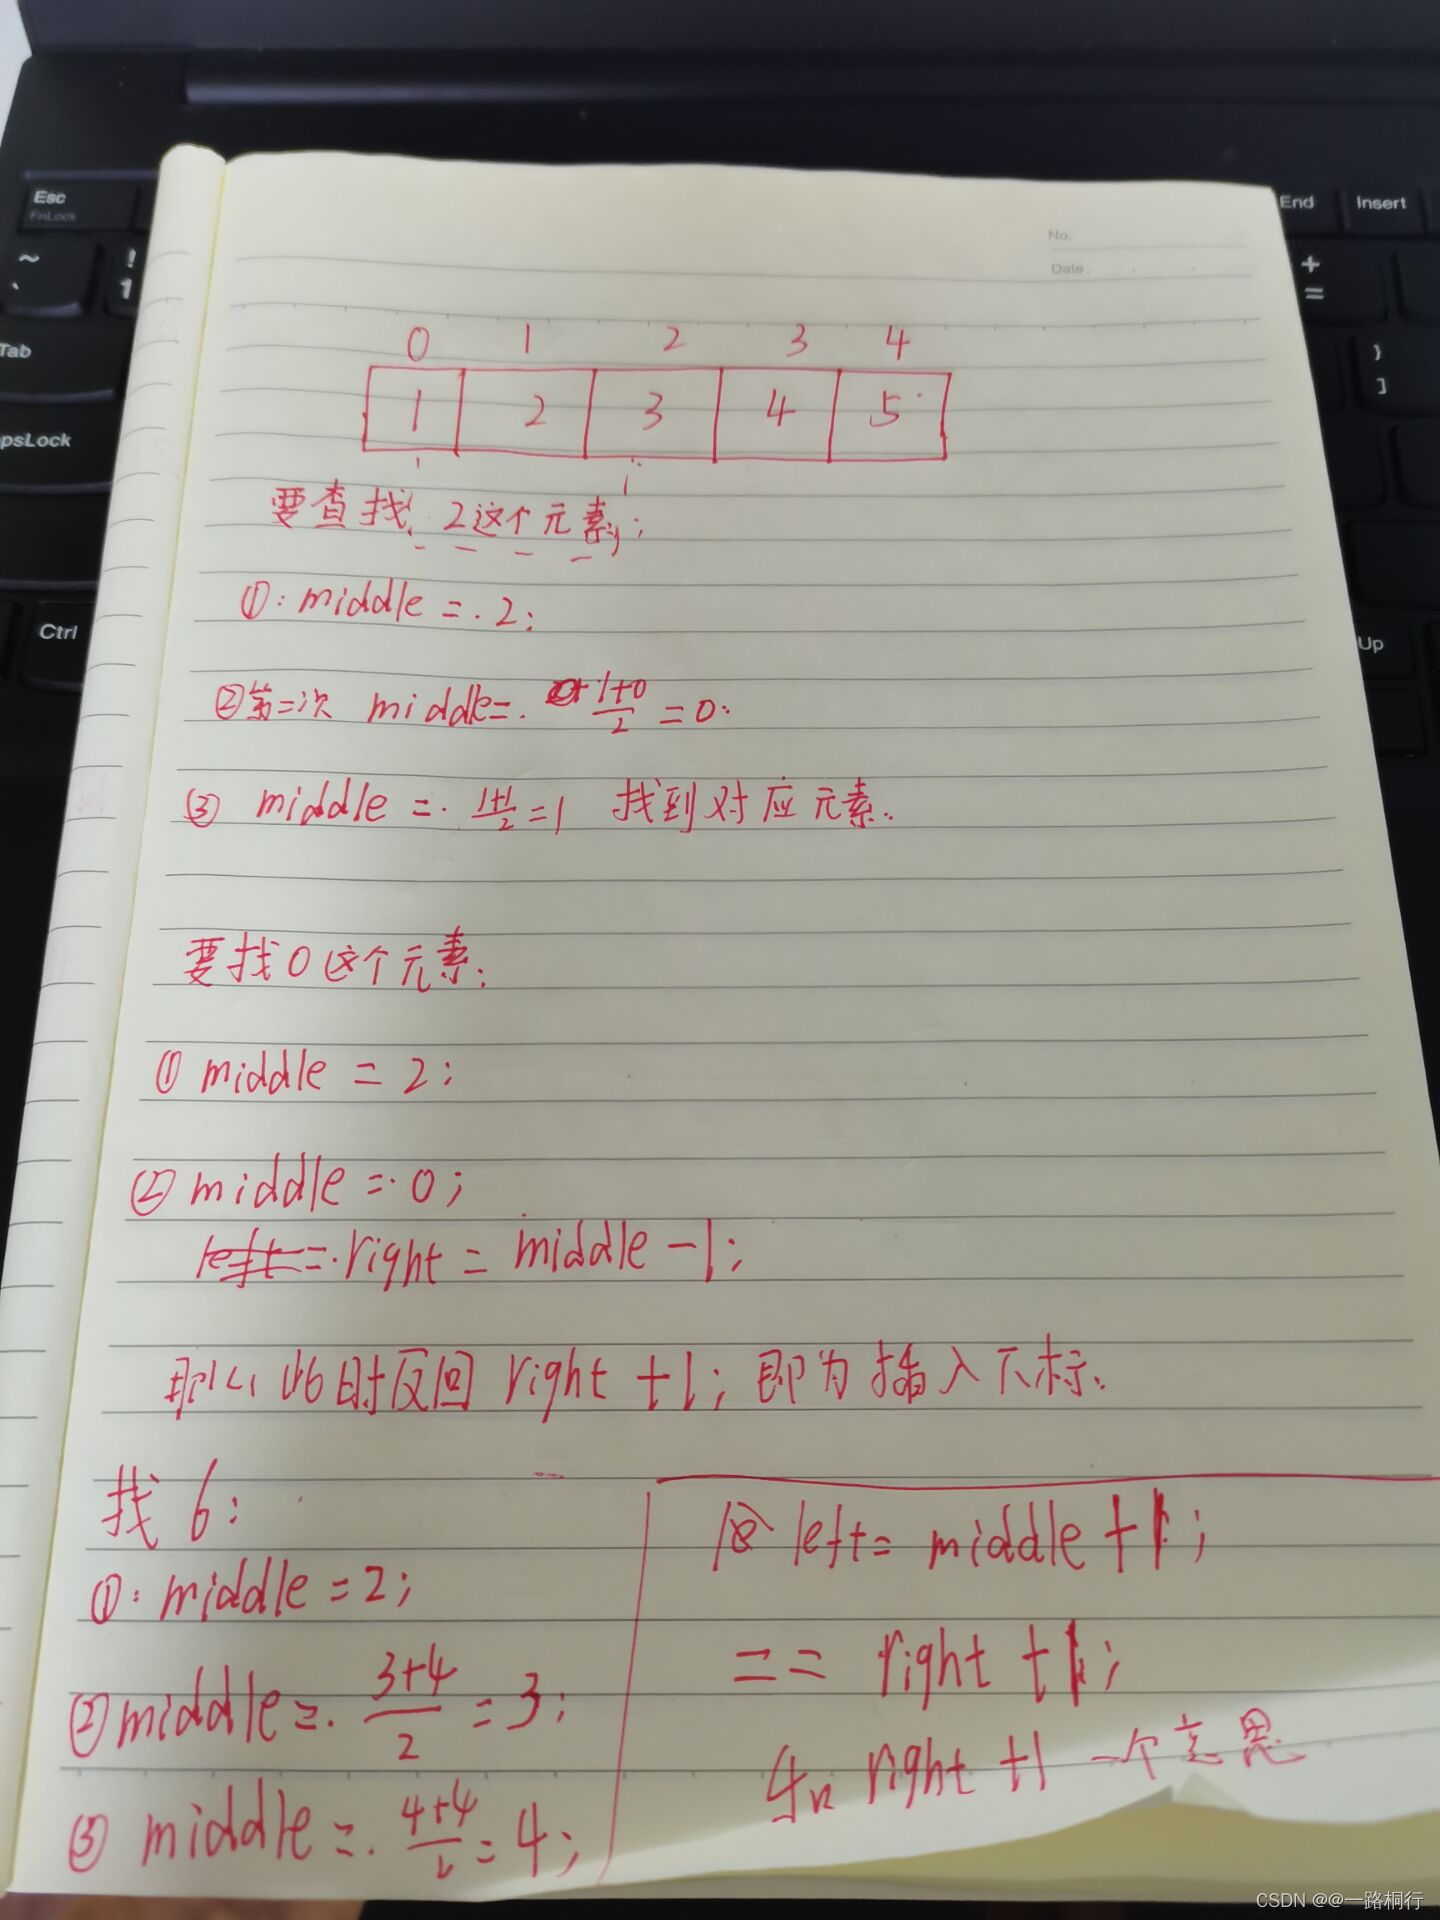 Esc
FnLock
End
Insert
~
`
!
1
+
=
Tab
}
]
psLock
Ctrl
Up
No.
Date.
0 1 2 3 4
1 2 3 4 5
要查找 2这个元素;
①: middle = 2;
②第二次 middle = 1+0/2 = 0.
③ middle = 1+1/2 = 1 找到对应元素.
要找0这个元素:
① middle = 2;
② middle = 0;
left = right = middle -1;
那么此时返回 right +1; 即为插入下标.
找 6:
①: middle = 2;
② middle = 3+4/2 = 3;
③ middle = 4+4/2 = 4;
left = middle +1;
== right +1;
和 right +1 一个意思
CSDN @@一路桐行